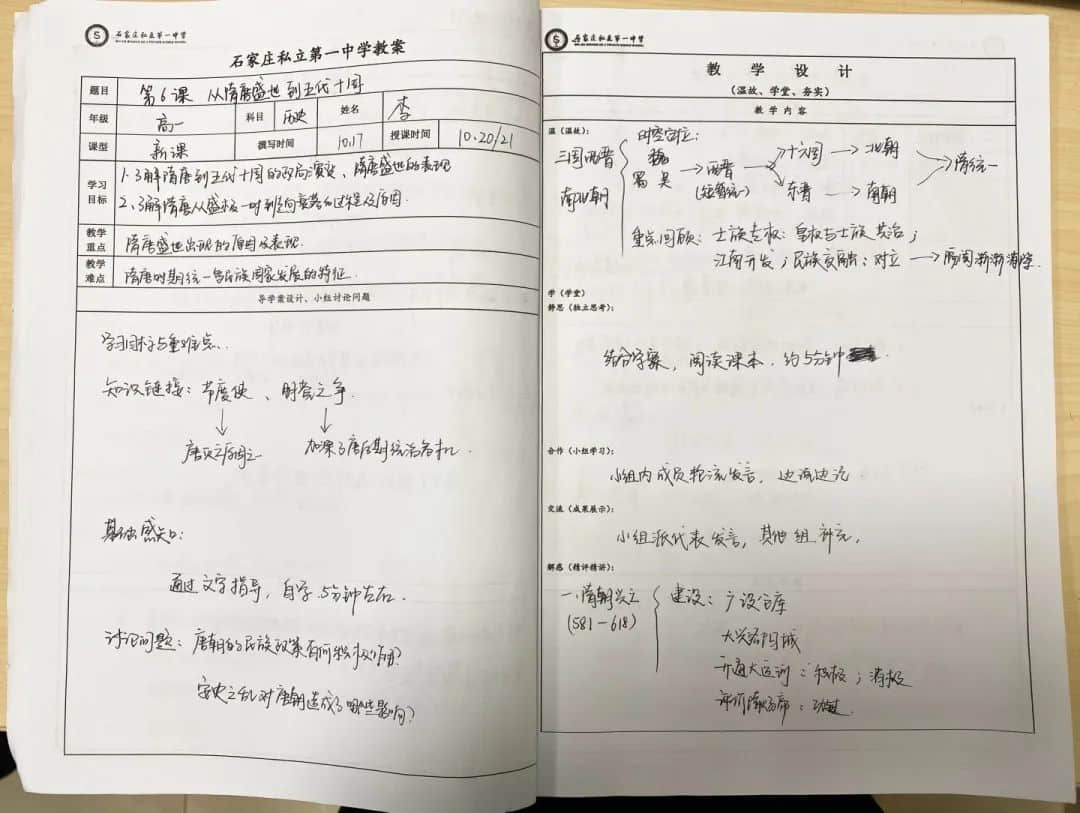 石家庄私立第一中学
石家庄私立第一中学教案
题目 第6课 从隋唐盛世到五代十国
年级 高一 科目 历史 姓名 李
课型 新课 撰写时间 10.17 授课时间 10.20/21
学习目标 1、了解隋唐到五代十国的政局演变、隋唐盛世的表现
2、了解隋唐从盛极一时到走向衰落的过程及原因.
教学重点 隋唐盛世出现的原因及表现.
教学难点 隋唐时期统一多民族国家发展的特征.
导学案设计、小组讨论问题
学习目标与重难点.
知识链接: 节度使、朋党之争.
唐灭亡原因之一 加深了唐后期统治危机.
基础感知:
通过文字指导, 自学 5分钟左右.
讨论问题: 唐朝的民族政策有何积极作用?
安史之乱对唐朝造成了哪些影响?
石家庄私立第一中学
教学设计
(温故、学堂、夯实)
教学内容
温(温故):
三国两晋南北朝
时空定位:
魏 蜀 吴 → 西晋 (短暂统一) → 十六国 → 北朝 → 隋统一
东晋 → 南朝
重点回顾: 士族专权: 皇权与士族共治;
江南开发; 民族交融: 对立 → 隔阂渐渐消除.
学(学堂)
静思(独立思考):
结合学案, 阅读课本. 约5分钟
合作(小组学习):
小组内成员轮流发言, 边说边记
交流(成果展示):
小组派代表发言, 其他组补充.
解惑(精评精讲):
一、隋朝兴亡
(581-618)
建设: 广设仓库
大兴 洛阳城
开通大运河: 积极; 消极
评价隋炀帝: 功过.